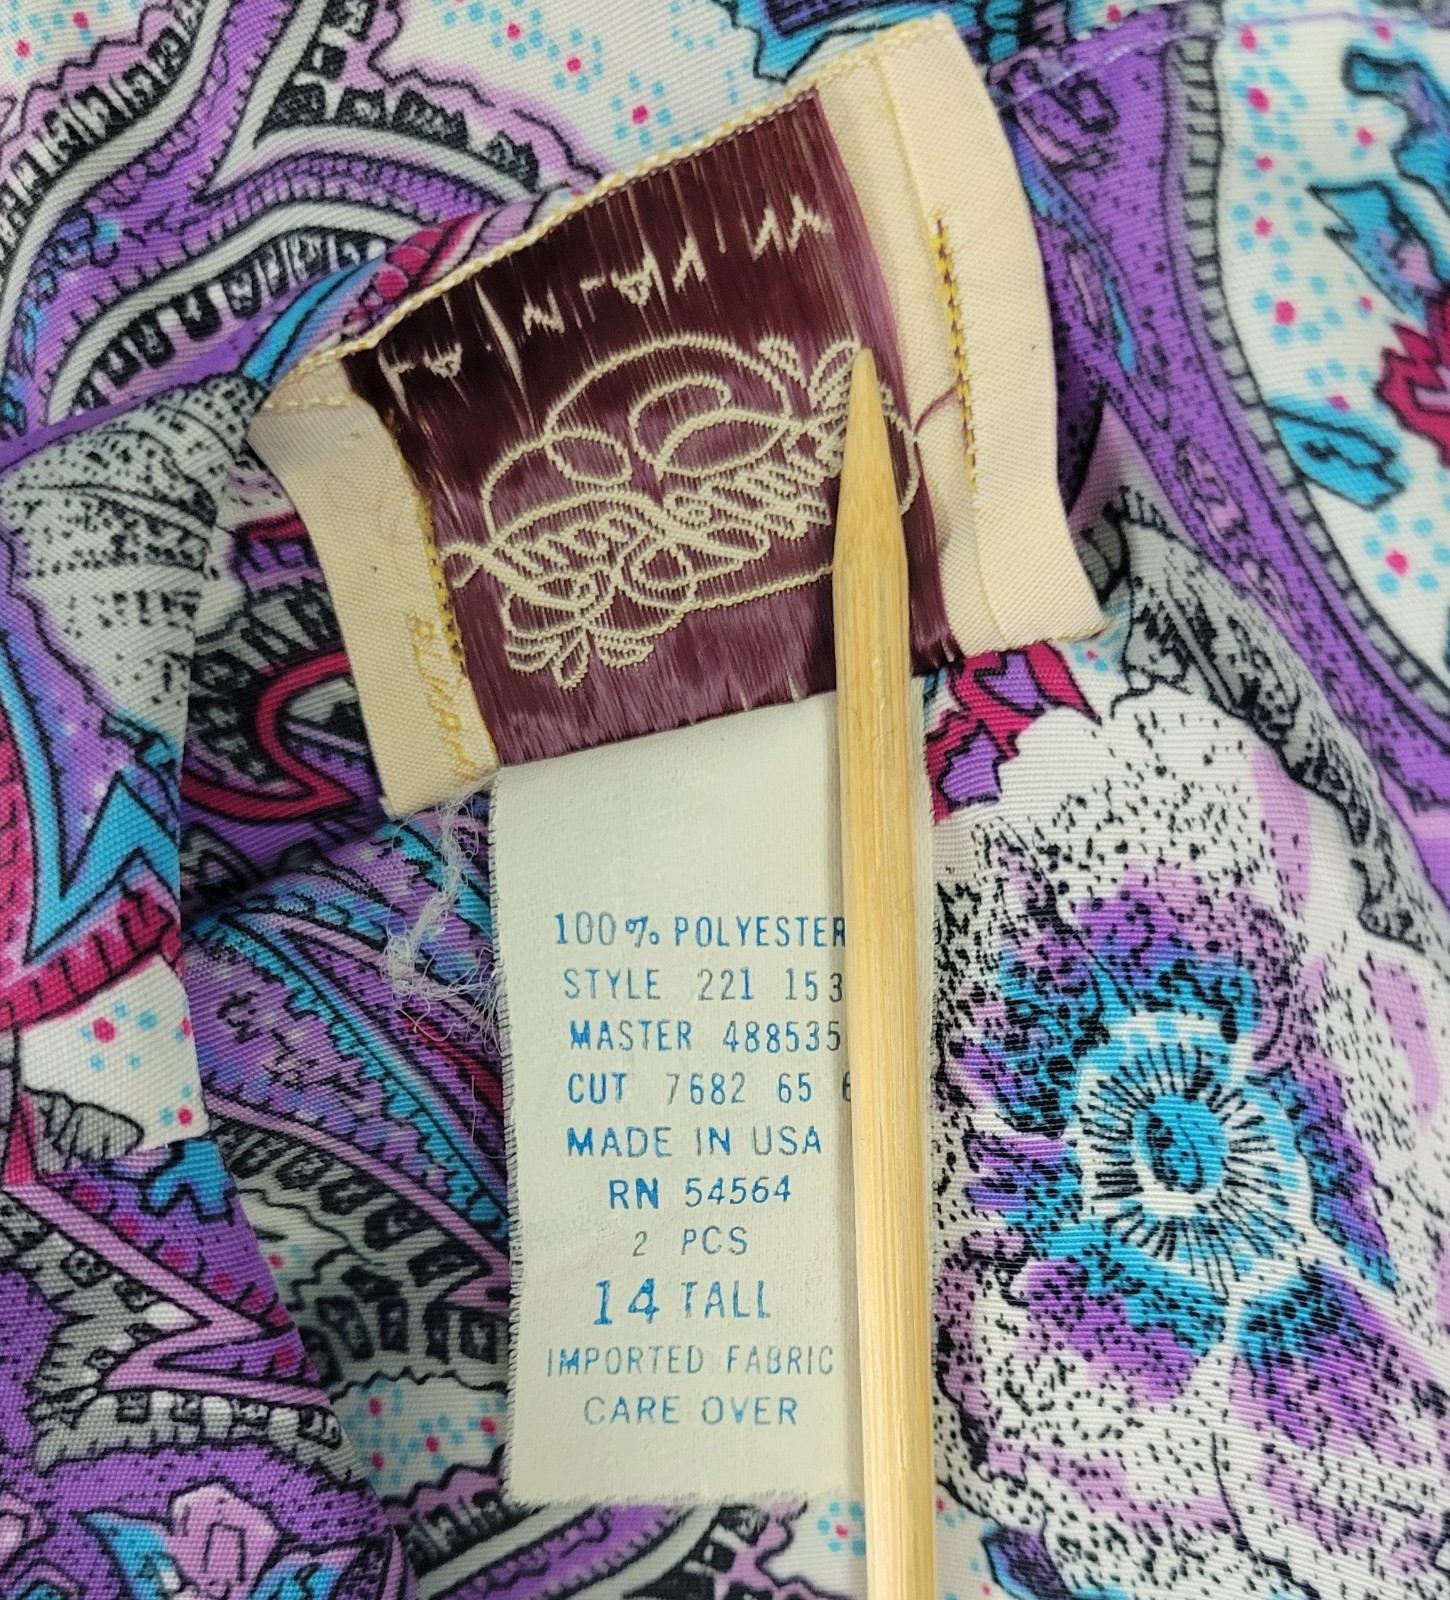 100% POLYESTER
STYLE 221 153
MASTER 488535
CUT 7682 65
MADE IN USA
RN 54564
2 PCS
14 TALL
IMPORTED FABRIC
CARE OVER